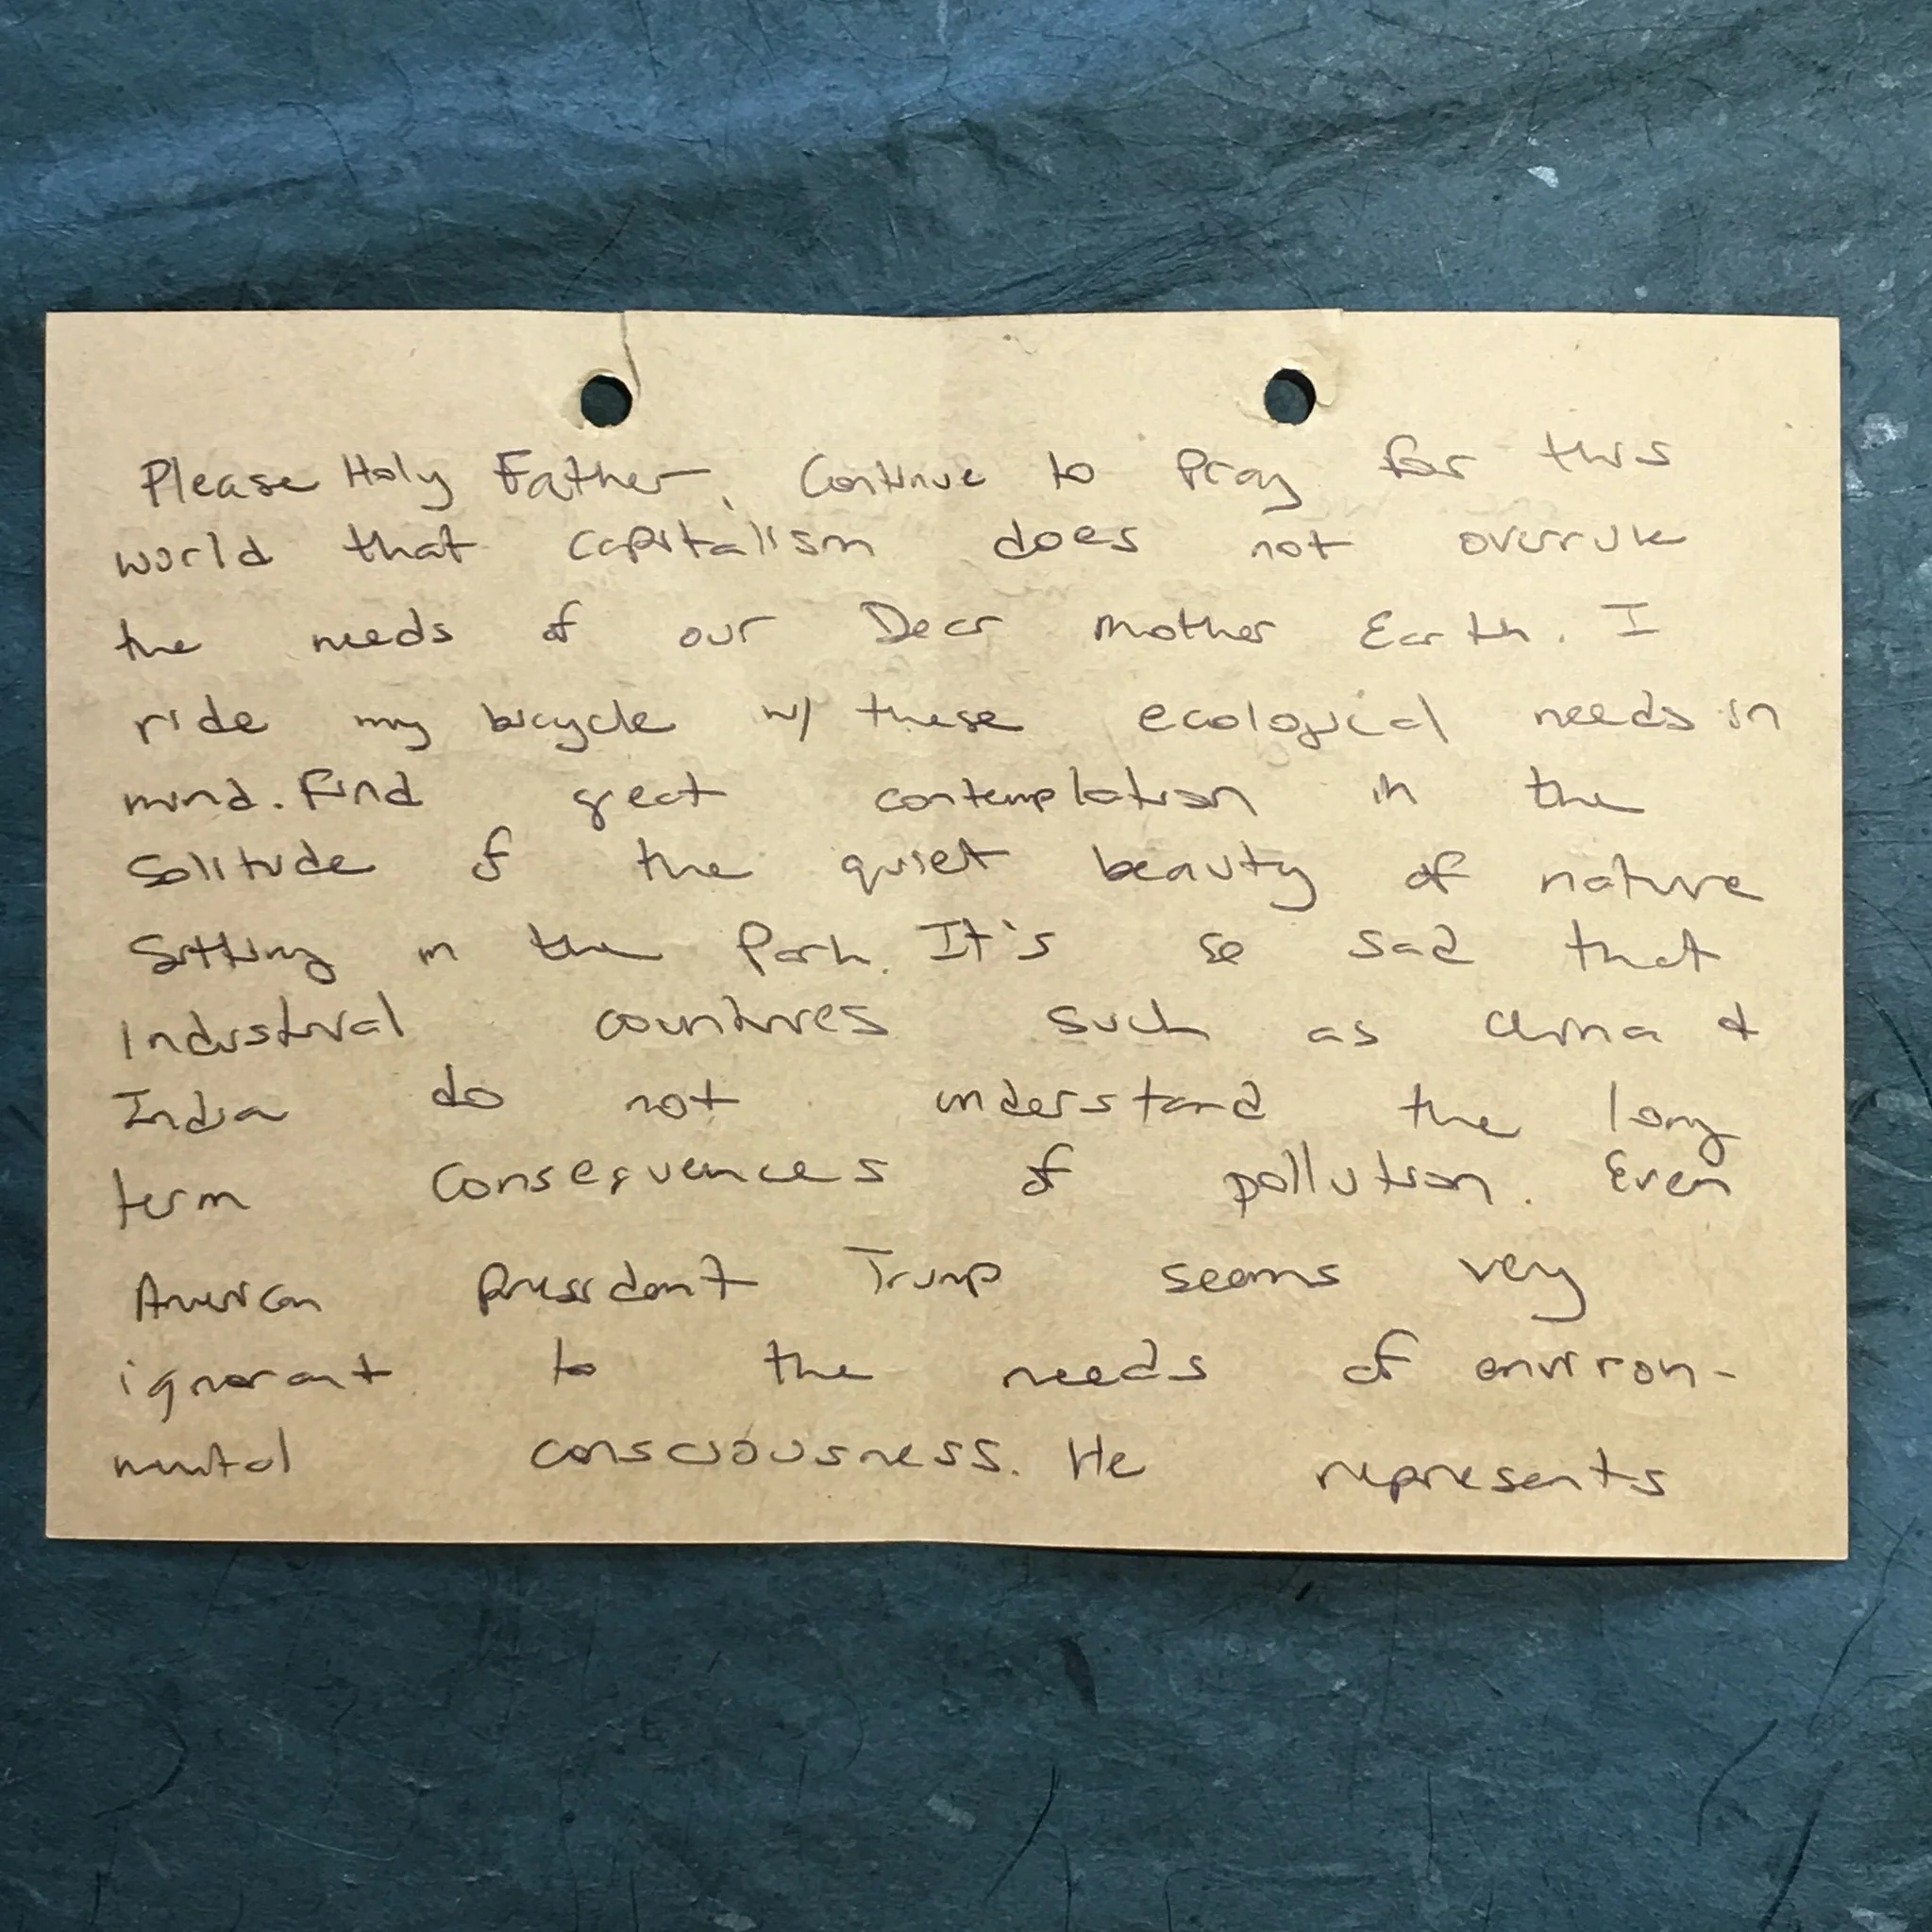 Please Holy Father, Continue to Pray for this
world that capitalism does not overrule
the needs of our Dear Mother Earth. I
ride my bicycle w/ these ecological needs in
mind. Find great contemplation in the
Solitude of the quiet beauty of nature
Sitting in the Park. It's so sad that
industrial countries such as China &
India do not understand the long
term consequences of pollution. Even
American president Trump seems very
ignorant to the needs of environ-
mental consciousness. He represents